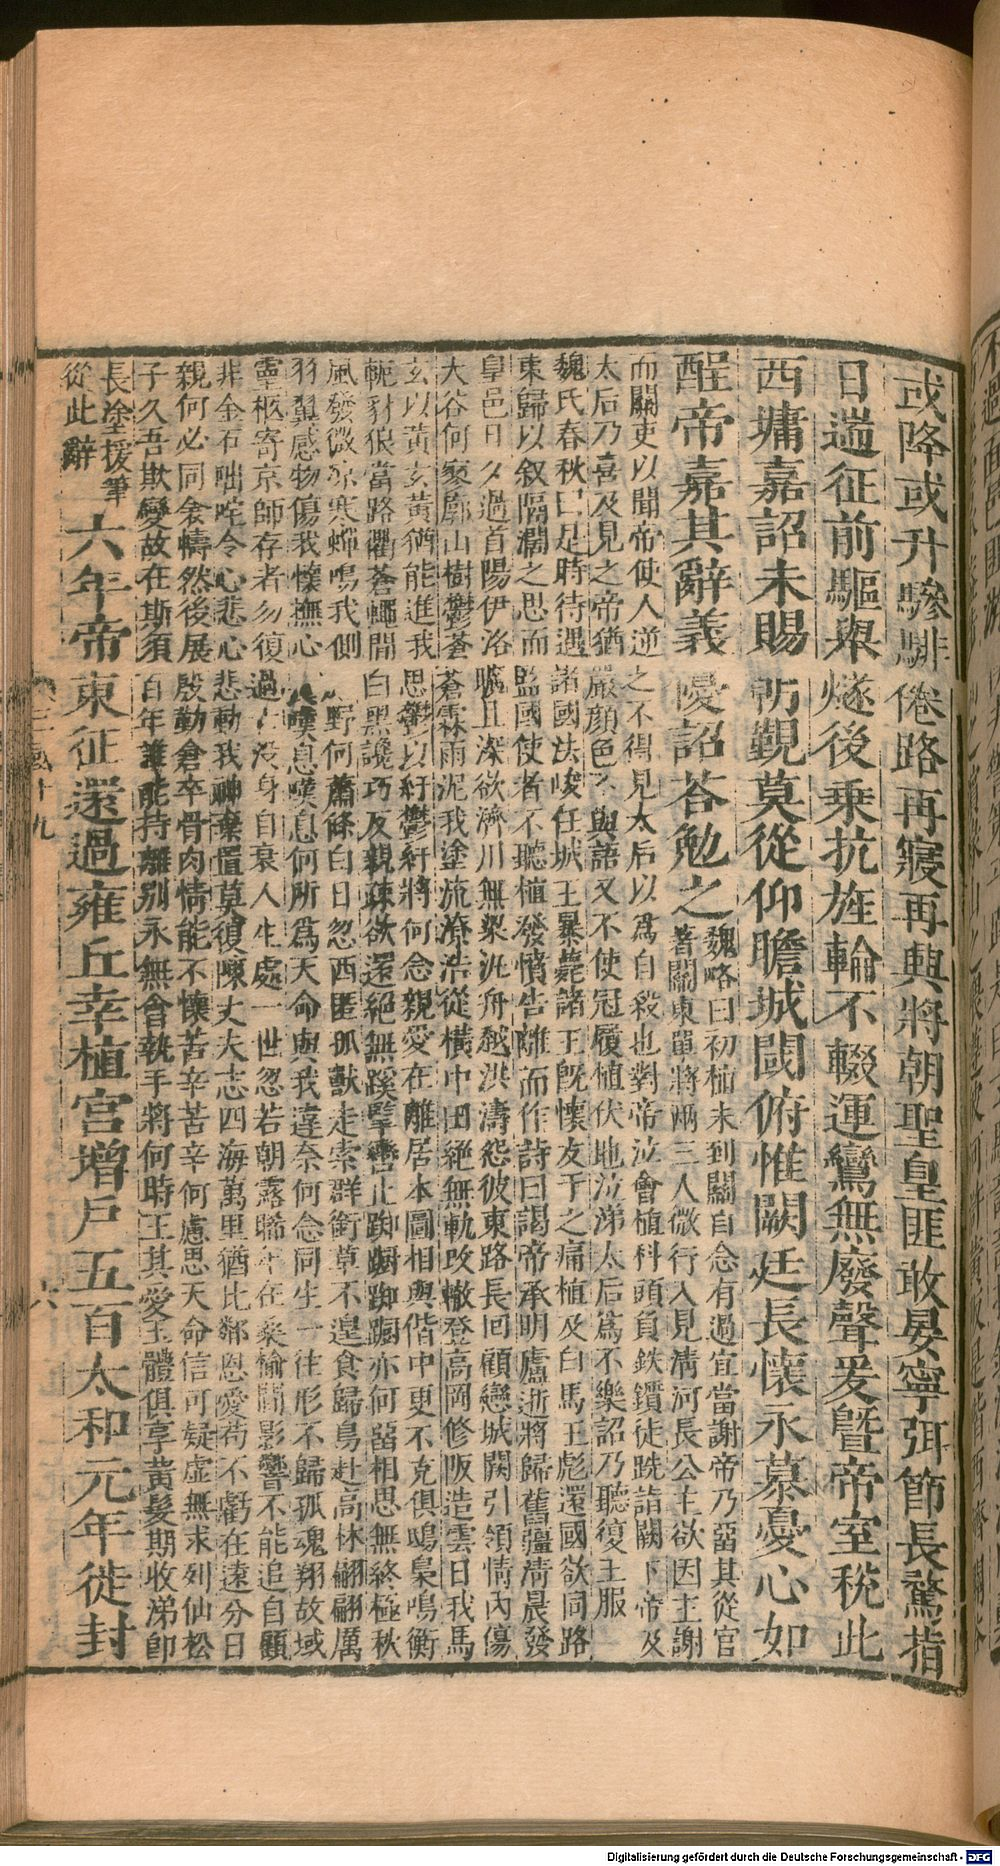 或降或升騑驂倦路再寢再興將朝聖皇匪敢晏寧弭節長騖指
日遄征前驅舉燧後乘抗旌輪不輟運鸞無廢聲爰曁帝室稅此
西墉嘉詔未賜朝覲莫從仰瞻城閾俯惟闕廷長懷永慕憂心如
酲帝嘉其辭義優詔荅勉之魏略曰初植未到關自念有過宜當謝帝乃留其從官
著關東單將兩三人微行入見淸河長公主欲因主謝
而關吏以聞帝使人逆之不得見太后以爲自殺也對帝泣會植科頭負鈇鑕徒跣詣闕下帝及
太后乃喜及見之帝猶嚴顏色不與語又不使冠履植伏地泣涕太后爲不樂詔乃聽復王服
魏氏春秋曰是時待遇諸國法峻任城王暴薨諸王旣懷友于之痛植及白馬王彪還國欲同路
東歸以叙隔濶之思而監國使者不聽植發憤告離而作詩曰謁帝承明廬逝將歸舊疆淸晨發
皇邑日夕過首陽伊洛曠且深欲濟川無梁汎舟越洪濤怨彼東路長回顧戀城闕引領情內傷
大谷何寥廓山樹鬱蒼蒼霖雨泥我塗流潦浩從橫中田絕無軌改轍登高岡修阪造雲日我馬
玄以黃玄黃猶能進我思鬱以紆鬱紆將何念親愛在離居本圖相與偕中更不克俱鴟梟鳴衡
軛豺狼當路衢蒼蠅間白黑讒巧反親疎欲還絕無蹊攬轡止踟躕踟躕亦何留相思無終極秋
風發微凉寒蟬鳴我側野何蕭條白日忽西匿孤獸走索群銜草不遑食歸鳥赴高林翩翩厲
羽翼感物傷我懷撫心嘆息嘆息何所爲天命與我違奈何念同生一往形不歸孤魂翔故域
靈柩寄京師存者勿復過亡沒身自衰人生處一世忽若朝露晞年在桑榆閒影響不能追自顧
非金石咄咤令心悲心悲動我神棄置莫復陳丈夫志四海萬里猶比鄰恩愛苟不虧在遠分日
親何必同衾幬然後展殷勤倉卒骨肉情能不懷苦辛苦辛何慮思天命信可疑虛無求列仙松
子久吾欺變故在斯須百年誰能持離別永無會執手將何時王其愛玉體俱享黃髮期收涕卽
長塗援筆
從此辭六年帝東征還過雍丘幸植宮增戶五百太和元年徙封
三國十九
六
Digitalisierung gefördert durch die Deutsche Forschungsgemeinschaft - DFG